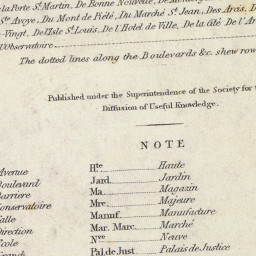 la Porte St. Martin, De Bonne Nouvelle, De
Ste. Avoye, Du Mont de Piété, Du Marché St. Jean, Des Arcis, D
-Vingt, De l'Isle St. Louis, De l'Hotel de Ville, De la Cité De l'Ar
l'Observatoire.
The dotted lines along the Boulevards &c. shew row
Published under the Superintendence of the Society for
Diffusion of Useful Knowledge.
NOTE
Avenue Hte. Haute
Boulevard Jard. Jardin
Barriere Ma Magazin
Conservatoire Mre. Majeure
Salle Manuf. Manufacture
Direction Mar. Marc. Marché
Ecole Nve. Neuve
Grande Pal. de Just Palais de Justice